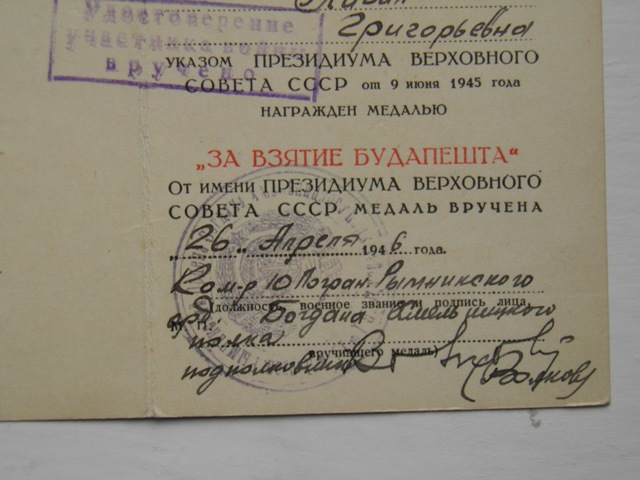 Удостоверение
участника войны
вручено
Григорьевна
УКАЗОМ ПРЕЗИДИУМА ВЕРХОВНОГО
СОВЕТА СССР от 9 июня 1945 года
НАГРАЖДЕН МЕДАЛЬЮ
„ЗА ВЗЯТИЕ БУДАПЕШТА“
От имени ПРЕЗИДИУМА ВЕРХОВНОГО
СОВЕТА СССР МЕДАЛЬ ВРУЧЕНА
„26„ Апреля 1946 года.
Ком-р 10 Погран. Рымникского
(должность, военное звание и подпись лица,
Богдана Хмельницкого
М. П.
полка
вручившего медаль)
подполковник